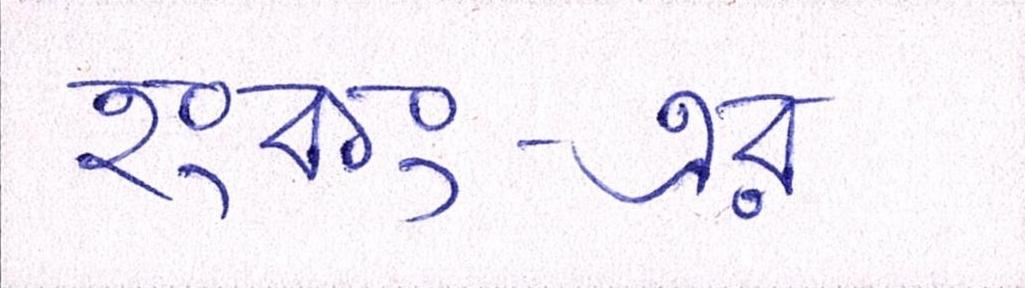 হংকং-এর